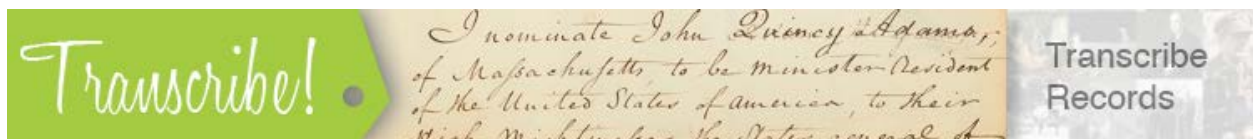 Transcribe!
I nominate John Quincy Adams,
of Massachusetts, to be minister Resident
of the United States of america, to their
High Mightinesses the States general of
Transcribe
Records